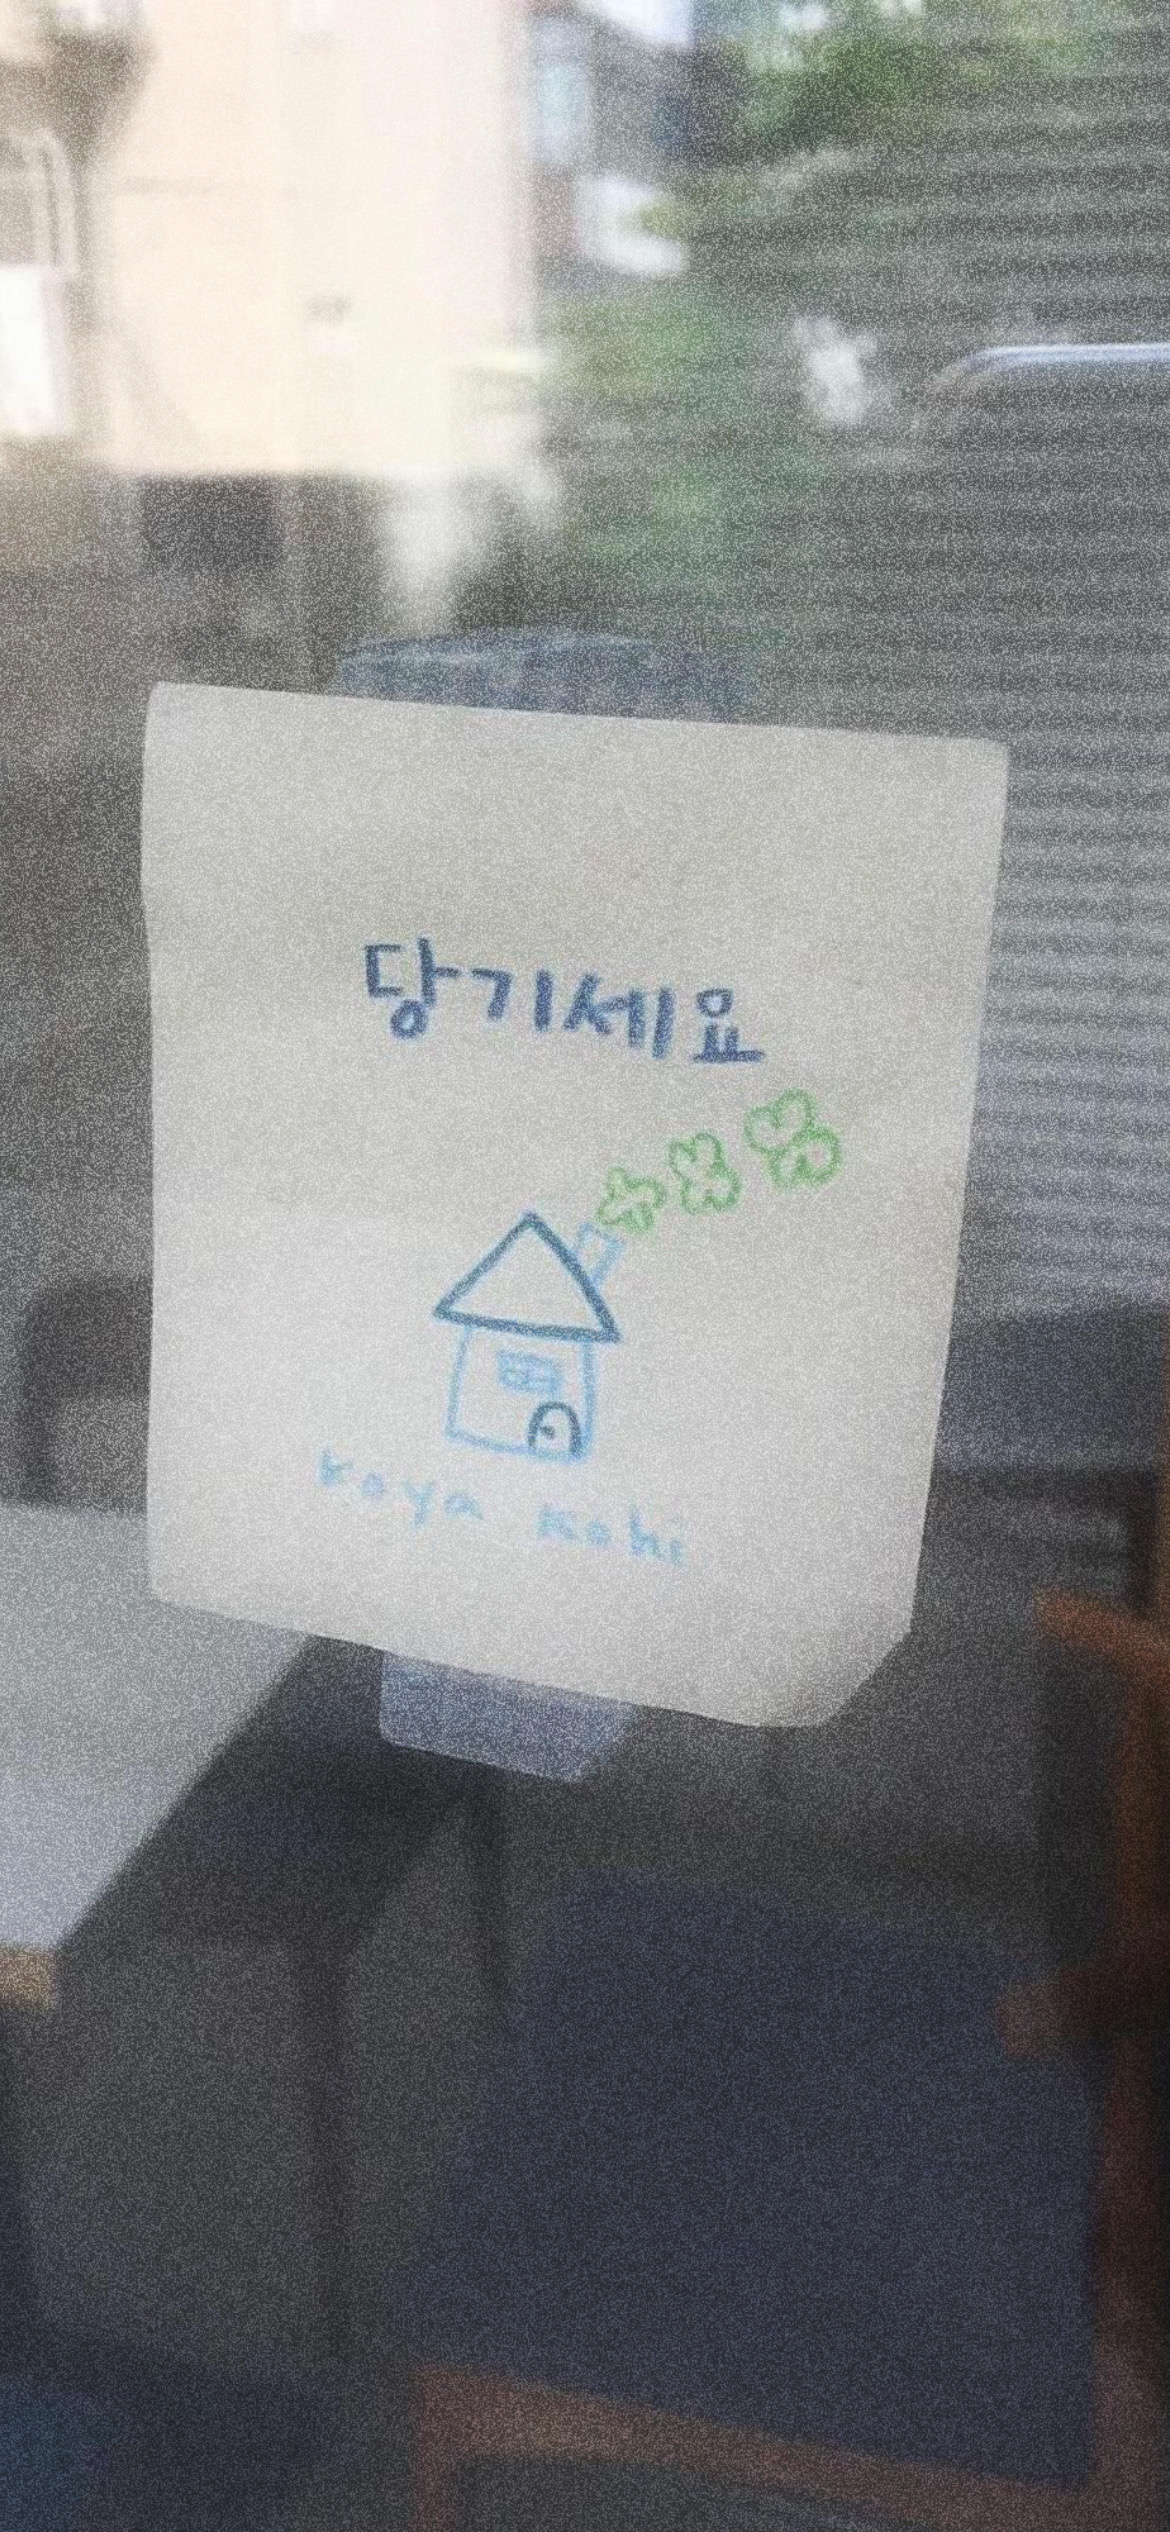 당기세요
koya kohi